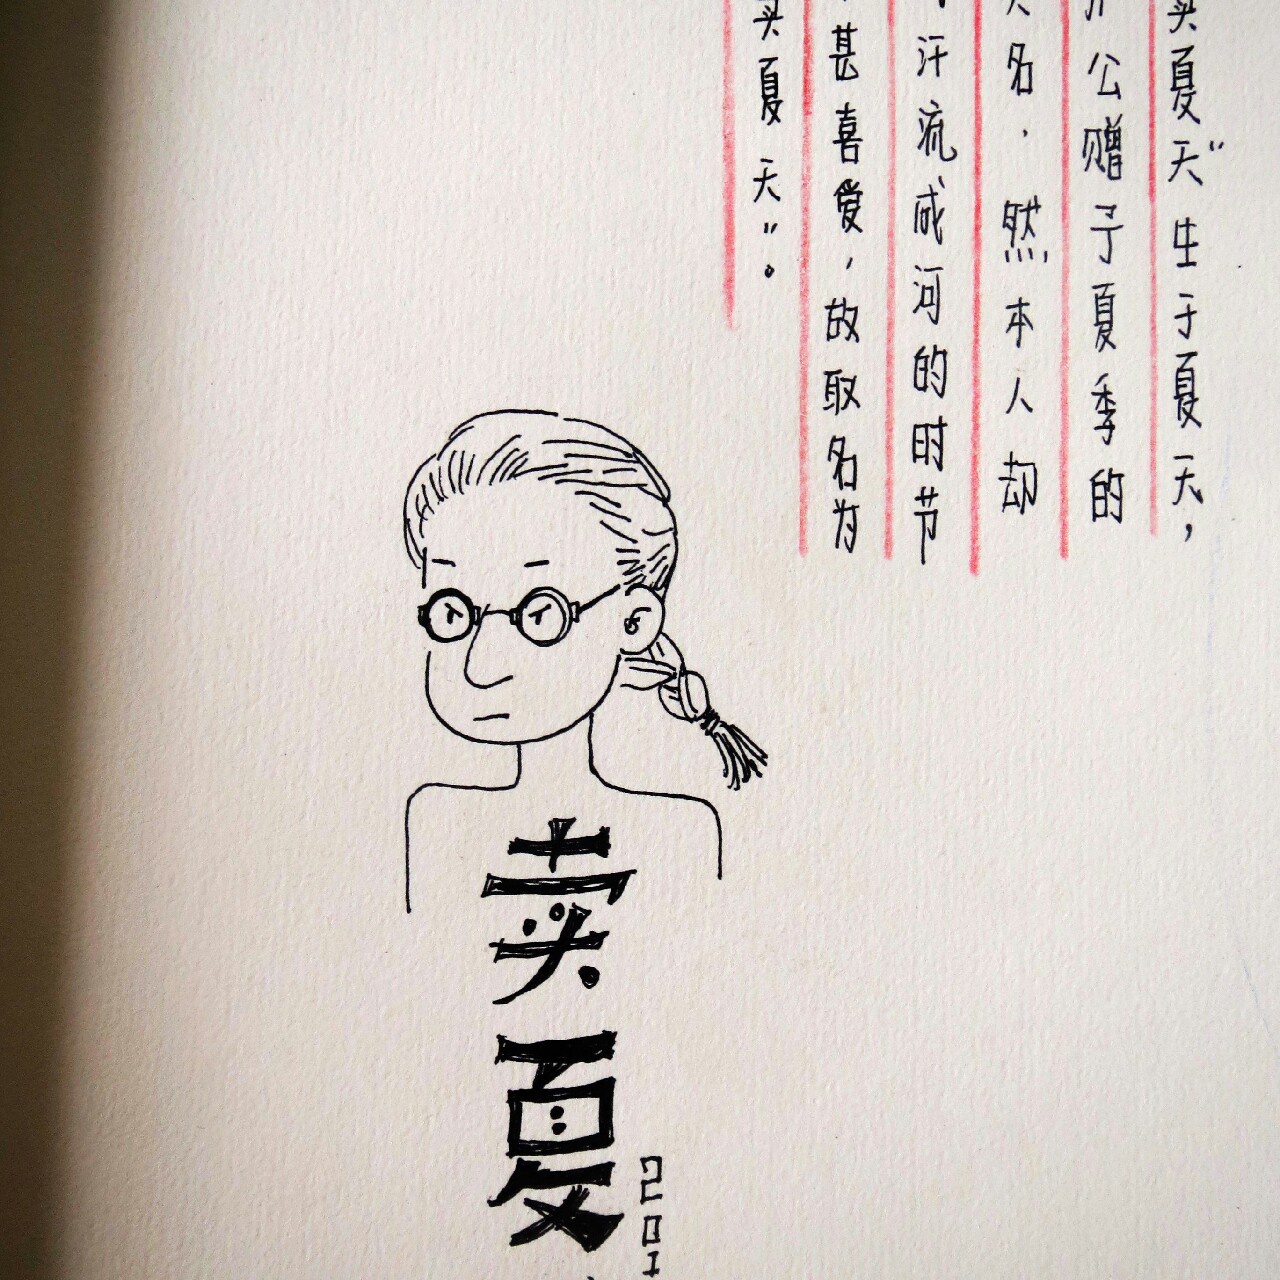 卖夏天"生于夏天，
公赠予夏季的
名，然本人却
，汗流成河的时节
，甚喜爱，故取名为
卖夏天"。
卖夏
201